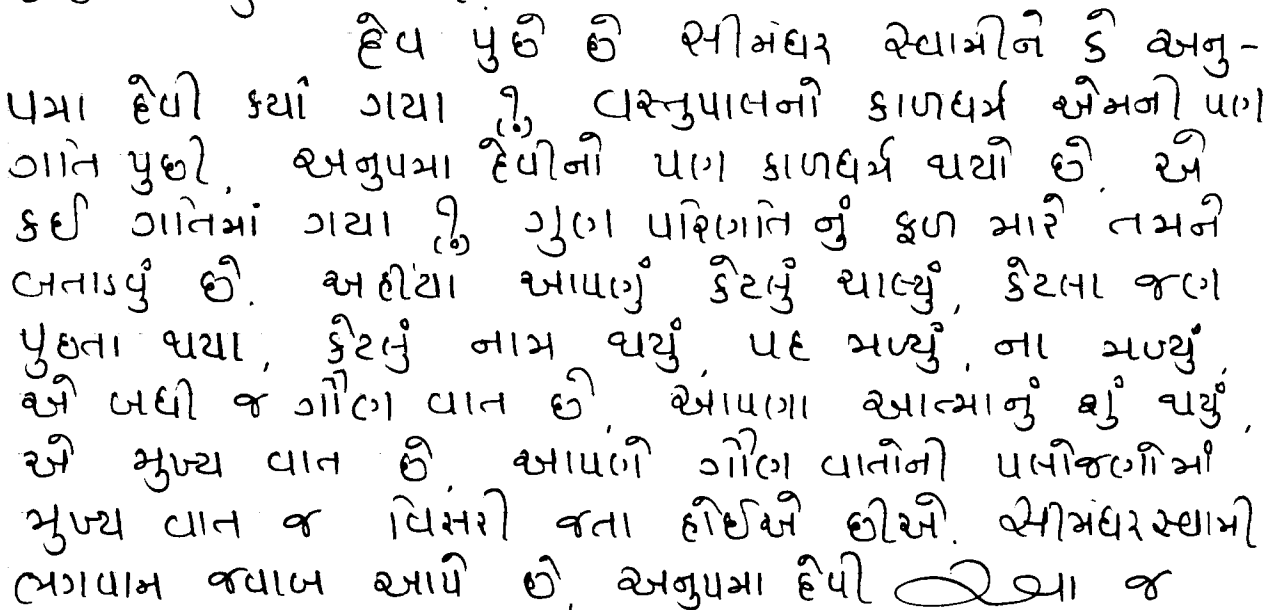 દેવ પુછે છે સીમંધર સ્વામીને કે અનુ-
પમા દેવી કયાં ગયા ? વસ્તુપાલનો કાળધર્મ એમની પણ
ગતિ પુછી, અનુપમા દેવીનો પણ કાળધર્મ થયો છે, એ
કઈ ગતિમાં ગયા ? ગુણ પરિણતિ નું ફળ મારે તમને
બતાડવું છે. અહીંયા આપણું કેટલું ચાલ્યું, કેટલા જણ
પુછતા થયા, કેટલું નામ થયું, પદ મળ્યું, ના મળ્યું,
એ બધી જ ગૌણ વાત છે, આપણા આત્માનું શું થયું,
એ મુખ્ય વાત છે, આપણે ગૌણ વાતોની પલોજણોમાં
મુખ્ય વાત જ વિસરી જતા હોઈએ છીએ. સીમંધર સ્વામી
ભગવાન જવાબ આપે છે, અનુપમા દેવી આ જ